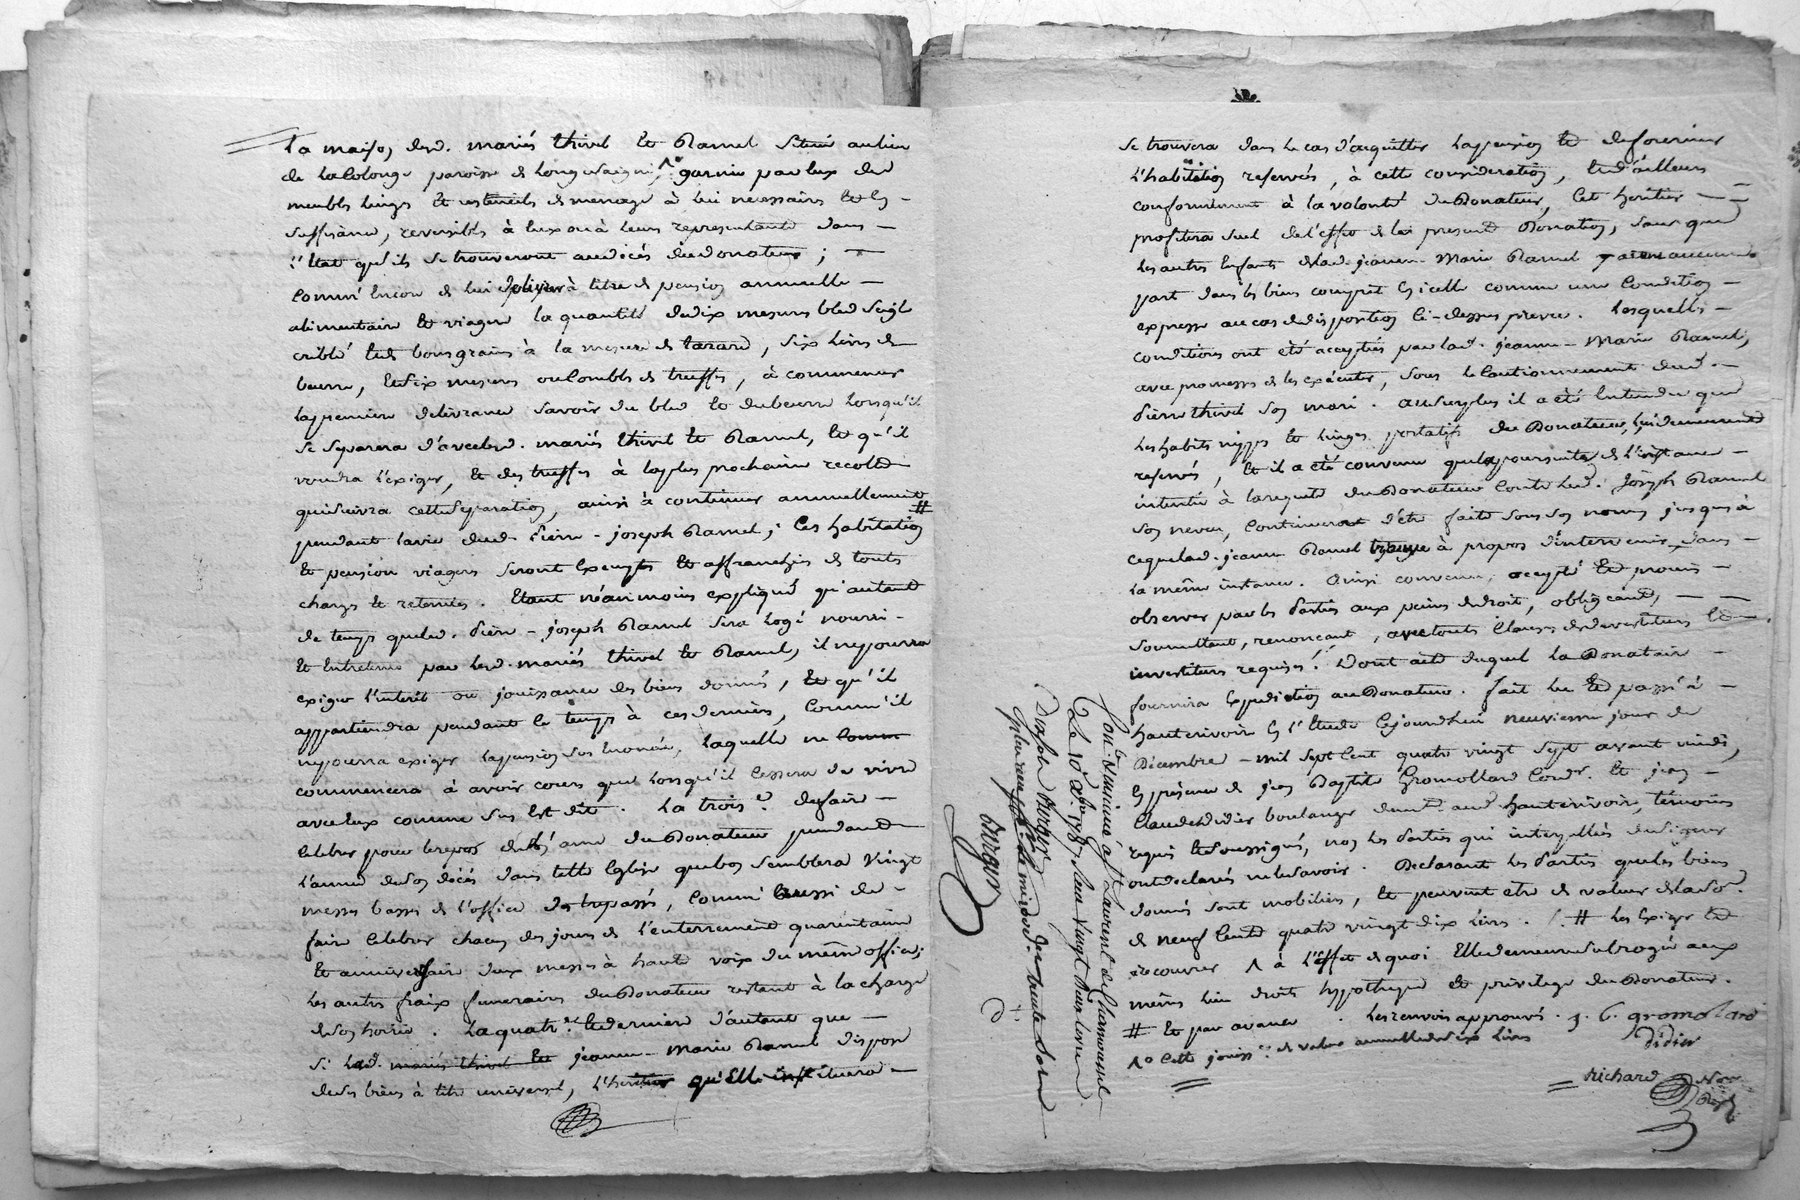 La maison desd. mariés thivel et Ramel située au lieu
de la Colonge paroisse de Longessaigne, 1° garnie par eux de
meubles linges et ustenciles de menage à lui necessaires et en
suffisance, reversibles à eux ou à leurs representants dans
l'état qu'ils se trouveront au décés du donateur ;
comm' encore de lui delivrer à titre de pension annuelle
alimentaire et viagere la quantité de dix mesures bled seigle
criblé et de bons grains à la mesure de tarare, six livres de
beurre, et six mesures ou combles de truffes, à commencer
la premiere delivrance savoir du bled et du beurre lorsqu'il
se separera d'avec lesd. mariés thivel et Ramel, et qu'il
voudra l'exiger, et des truffes à la plus prochaine recolte
qui suivra cette separation, ainsi à continuer annuellement #
pendant la vie dud. Pierre-joseph Ramel ; Ces habitation
et pension viageres seront exemptes et affranchies de toutes
charges et retenues. Etant néanmoins expliqué qu'autant
de temps que led. Pierre-joseph Ramel sera logé nourri
et entretenu par lesd. mariés thivel et Ramel, il ne pourra
exiger l'interêt ou jouissance des biens donnés, et qu'il
appartiendra pendant le temps à ces derniers, comm'il
ne pourra exiger la pension sus enoncée, laquelle ne comm
commencera à avoir cours que lorsqu'il cessera de vivre
avec eux comme sus est dit. La trois.e de faire
celebrer pour le repos de l'ame du Donateur pendant
l'année de son décés dans telle Eglise que bon semblera vingt
messes basses de l'office des trepassés, comm' aussi de
faire celebrer chacun des jours de l'enterrement quarantaine
et anniversaire deux messes à haute voix du même office ;
les autres fraix funeraires du Donateur restant à la charge
de son hoirie. La quatr.e et derniere d'autant que
si lad. mariés thivel et jeanne-Marie Ramel dispose
de ses biens à titre universel, l'heritier qu'Elle instituera
se trouvera dans le cas d'acquitter la pension et de fournir
l'habitation reservées, à cette consideration, et d'ailleurs
conformement à la volonté du Donateur, Cet heritier
profitera seul de l'effet de la presente Donation, sans que
les autres enfants de lad. jeanne-Marie Ramel y aient aucune
part dans les biens compris en icelle comme une condition
expresse au cas de disposition ci-dessus prevu. Lesquelles
conditions ont été acceptées par lad. jeanne-Marie Ramel,
avec promesse de les exécuter, sous le cautionnement dud.
Pierre thivel son mari. au surplus il a été entendu que
les habits nippes et linges portatifs du Donateur, lui demeureront
reservés, et il a été convenu que la poursuite de l'instance
intentée à la requete du Donateur contre led. Joseph Ramel
son neveu, continueront d'etre faite sous son nom, jusques à
ceque lad. jeanne Ramel trouve à propos d'intervenir dans
la même instance. Ainsi convenu, accepté et promis
observer par les Parties aux peines de droit, obligeant,
soumettant, renonçant, avec toutes Clauses de devestiture et
investiture requises. Dont acte duquel la Donataire
fournira Expedition au Donateur. fait lu et passé à
hauterivoire en l'étude cejourdhui neuvieme jour de
Décembre mil sept cent quatre vingt sept avant midi,
en présence de jean Baptiste Gromollard Cord.r et jean
Claude Didier boulanger demt. aud. hauterivoire, témoins
requis et soussignés, non les Parties qui interpellées de signer
ont declarés ne le savoir. Declarant les Parties que les biens
donnés sont mobiliers, et peuvent etre de valeur de la so.e
de neuf cents quatre vingt dix livres. # Les exiger et
recouvrer à l'effet de quoi Elle demeure subrogée aux
mêmes lieu droits hypotheque et privilege du Donateur.
# et par avance. Les renvois approuvés. J. C. gromolard
1° Cette jouiss.ce de valeur annuelle de six livres
Didier
Richard Not.
Roy.
Con.lé & insinué à St Laurent de Chamousset
Le 10 Xbre 1787 Reçu vingt neuf livres